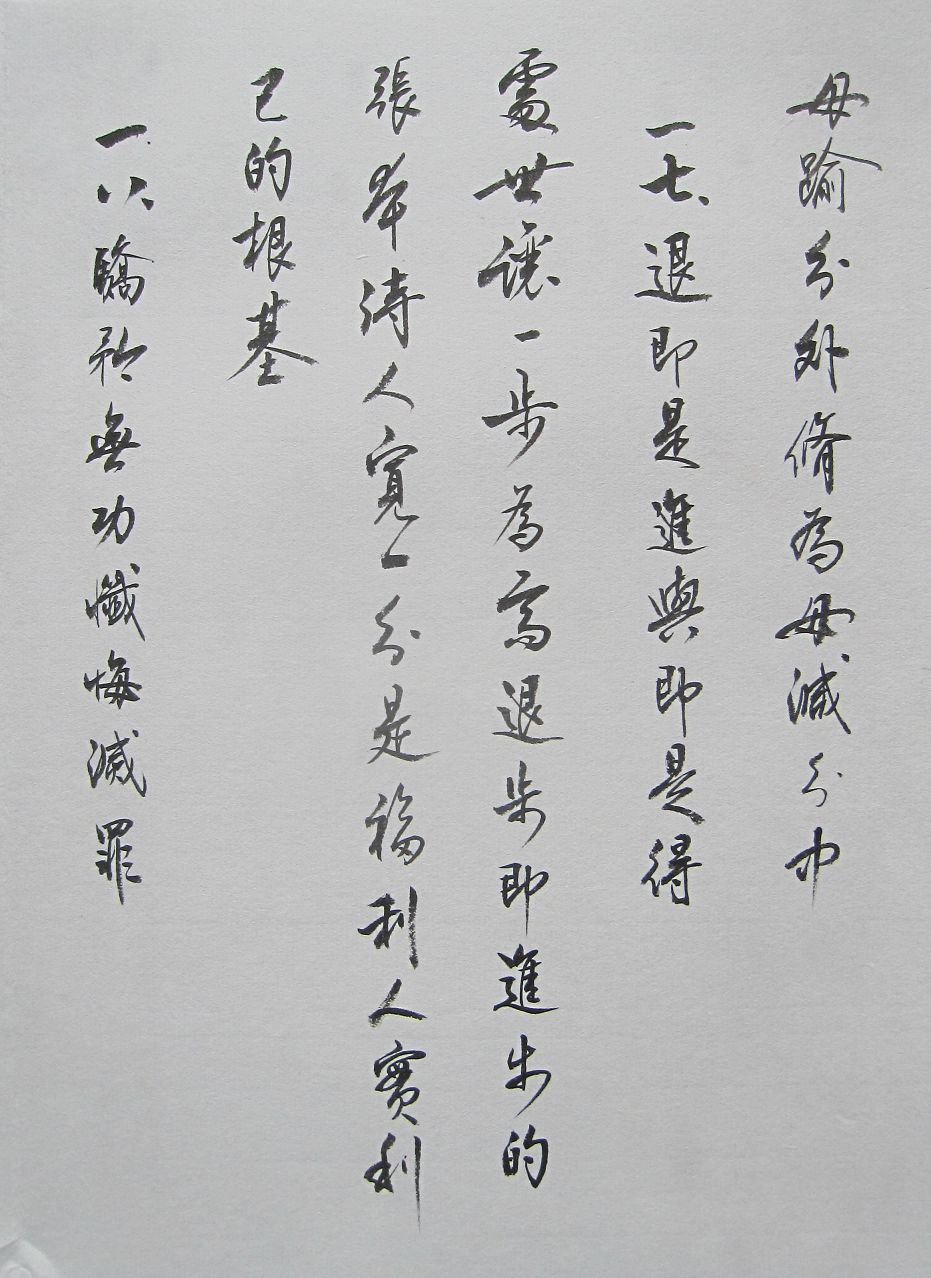 毋踰分外脩為毋減分中
一七、退即是進與即是得
處世讓一步為高退步即進步的
張本待人寬一分是福利人實利
己的根基
一八、驕矜無功懺悔滅罪